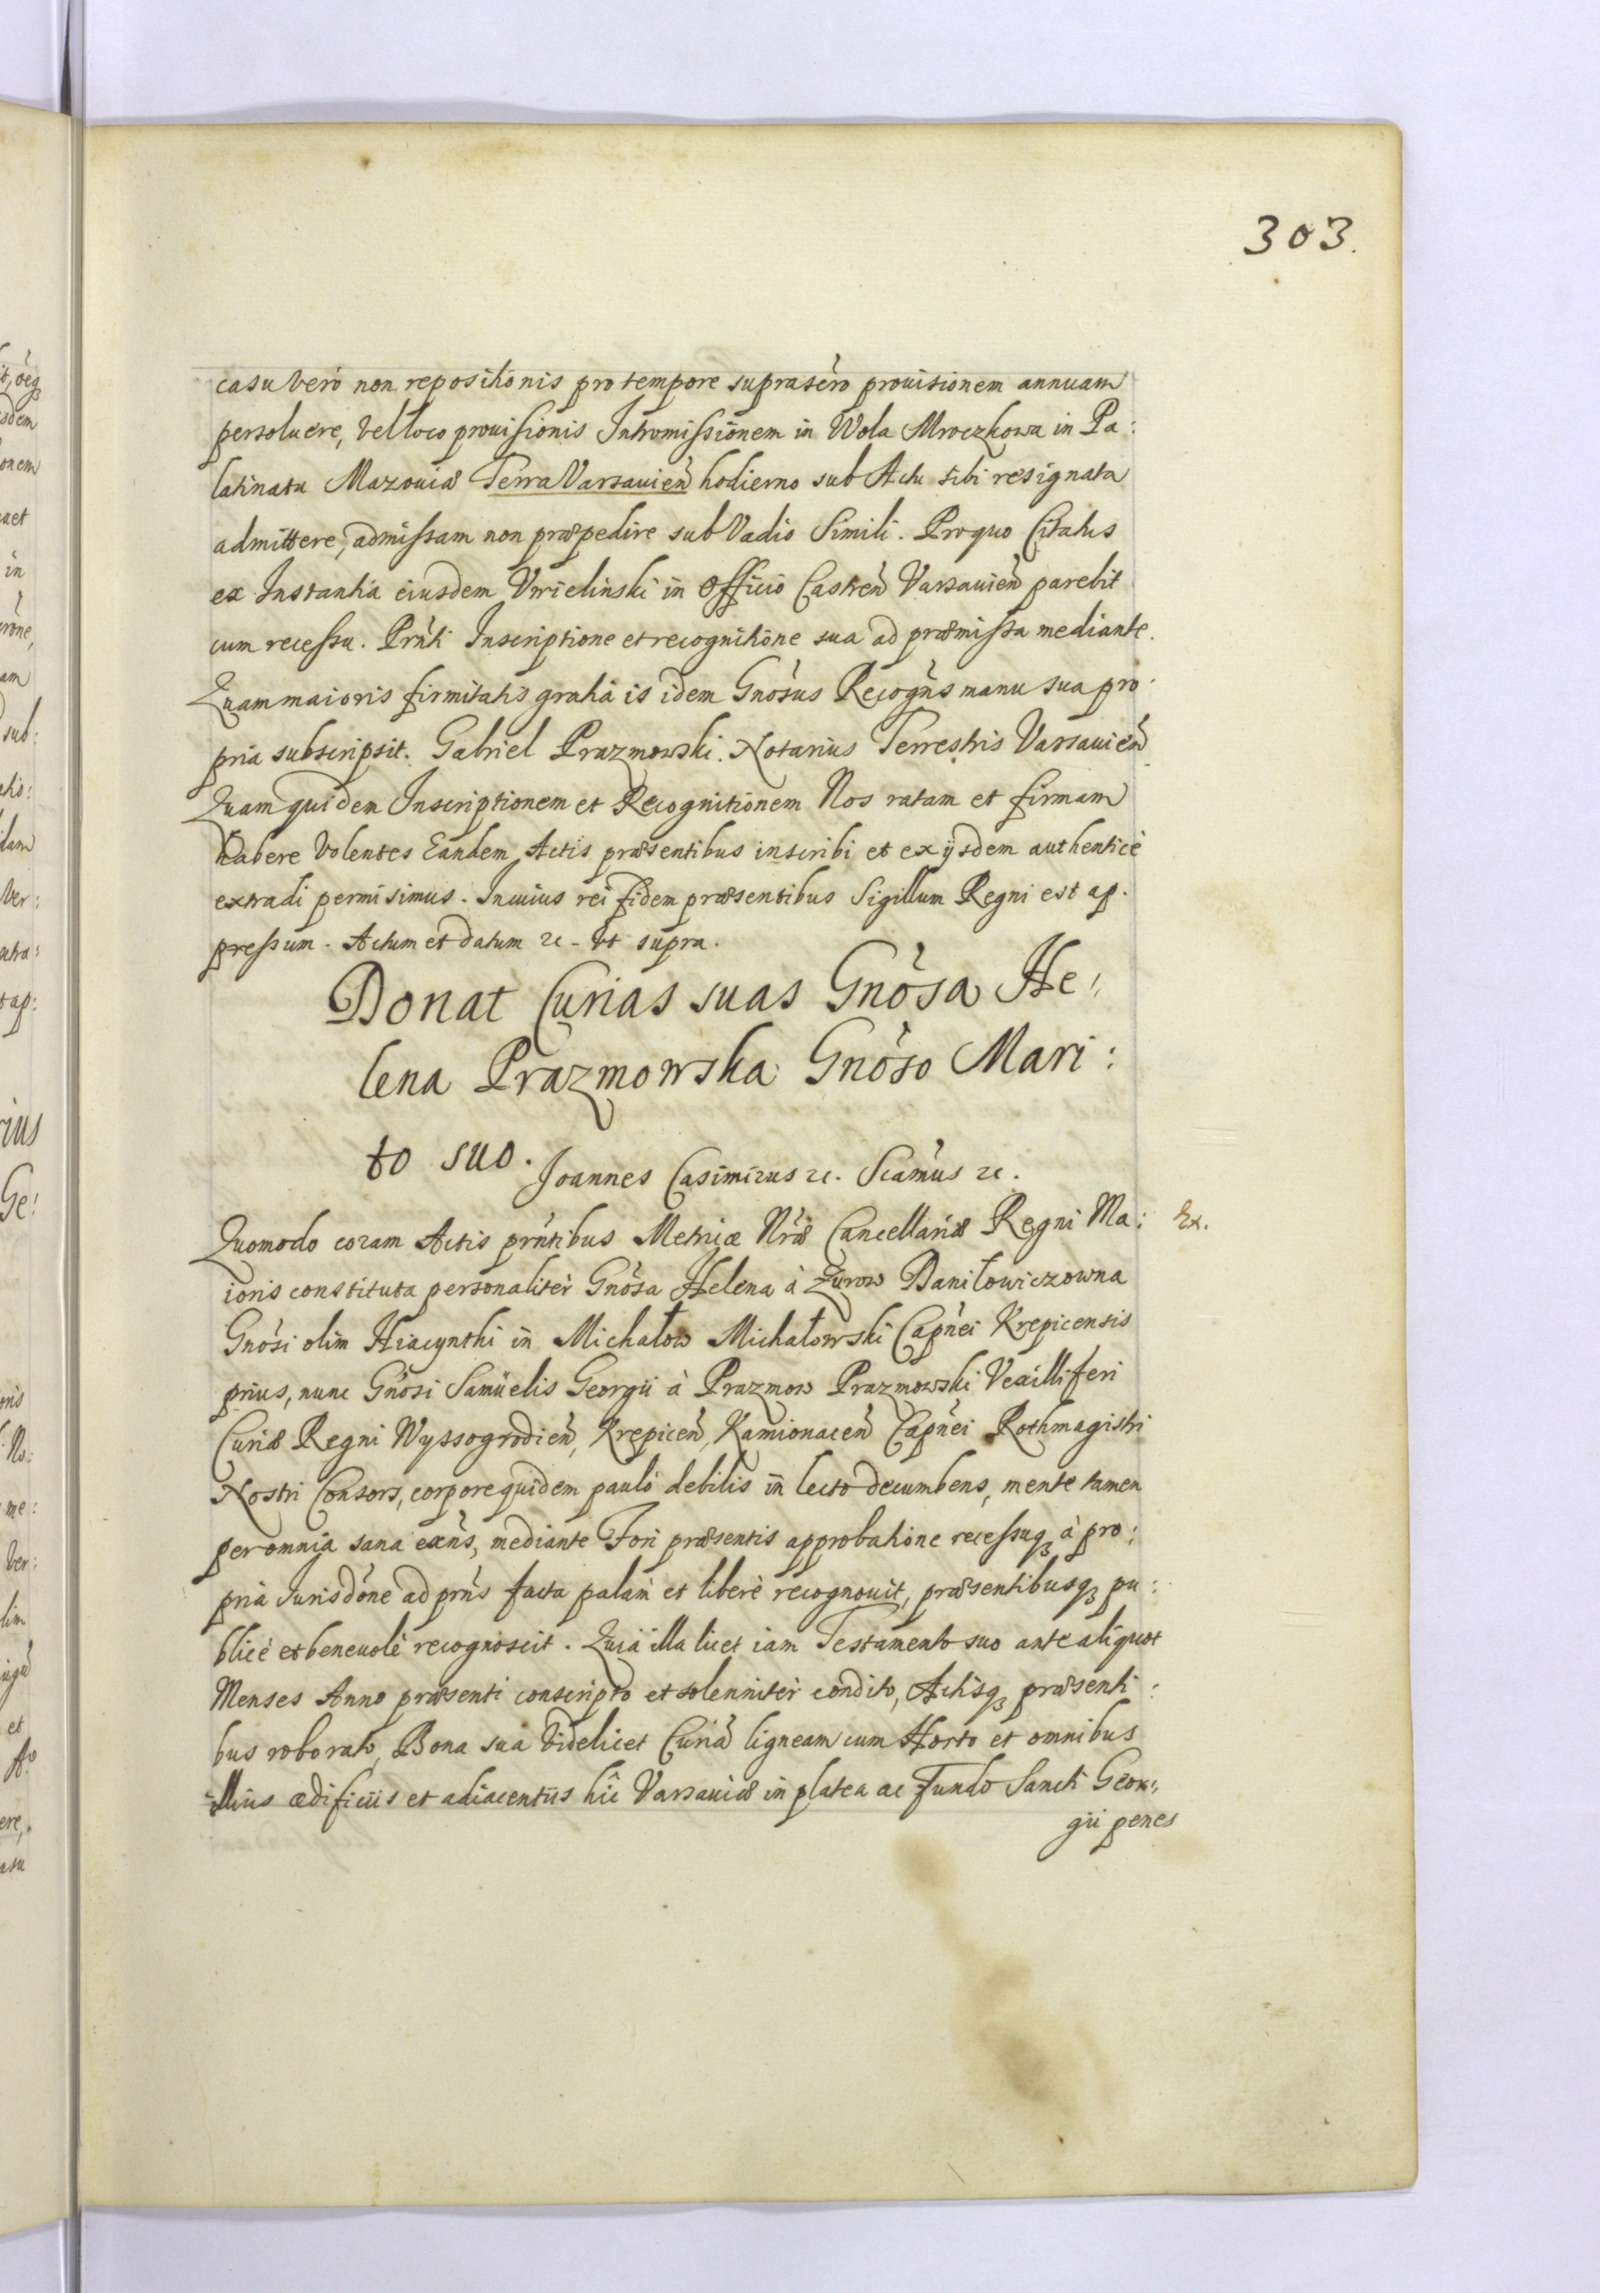 303.
casu verò non repositionis pro tempore suprascr̃o prouisionem annuam
persoluere, vel loco prouisionis Intromissionem in Wola Mroczkowa in Pa:
latinatu Mazouiæ Terra Varsauien̄ hodierno sub Actu sibi resignata
admittere, admissam non præpedire sub Vadio Simili. Pro quo Citatus
ex Instantia eiusdem Vrielinski in Officio Castren̄ Varsauien̄ parebit
cum recessu. Prn̄ti Inscriptione et recognitione sua ad præmissa mediante.
Quam maioris firmitatis gratiâ is idem Gnōsus Recogn̄s manu sua pro:
pria subscripsit. Gabriel Prazmowski. Notarius Terrestris Varsauien̄
Quam quidem Inscriptionem et Recognitionem Nos ratam et firmam
habere Volentes Eandem Actis præsentibus inscribi et ex ijsdem authenticè
extradi permisimus. In cuius rei fidem præsentibus Sigillum Regni est ap:
pressum. Actum et datum &c. vt supra.
Donat Curias suas Gnōsa He:
lena Prazmowska Gnōso Mari:
to suo.
Joannes Casimirus &c. Scamūs &c.
Quomodo coram Actis prn̄tibus Metricæ Nr̄æ Cancellariæ Regni Ma:
Ex.
ioris constituta personalitèr Gnōsa Helena à Zurow Daniłowiczowna
Gnōsi olim Hiacynthi in Michałow Michałowski Capn̄ei Krepicensis
prius, nunc Gnōsi Samüelis Georgii à Prazmow Prazmowski Vexilliferi
Curiæ Regni Wyssogrodien̄, Krepicen̄, Kamionacen̄ Capn̄ei Rothmagistri
Nostri Consors, corpore quidem pauló debilis in lecto decumbens, mente tamen
per omnia sana exn̄s, mediante Fori præsentis approbatione recessuqꝫ à pro:
pria Jurisdōne ad prn̄s facta palàm et liberè recognouit, præsentibusqꝫ pu:
blicè et beneuolè recognoscit. Quia illa licet iam Testamento suo ante aliquot
Menses Anno præsenti conscripto et solennitèr condito, Actisqꝫ præsenti:
bus roborato, Bona sua videlicet Curiā ligneam cum Horto et omnibus
illius ædificiis et adiacentiis hîc Varsauiæ in platea ac Fundo Sancti Geor:
gii penes